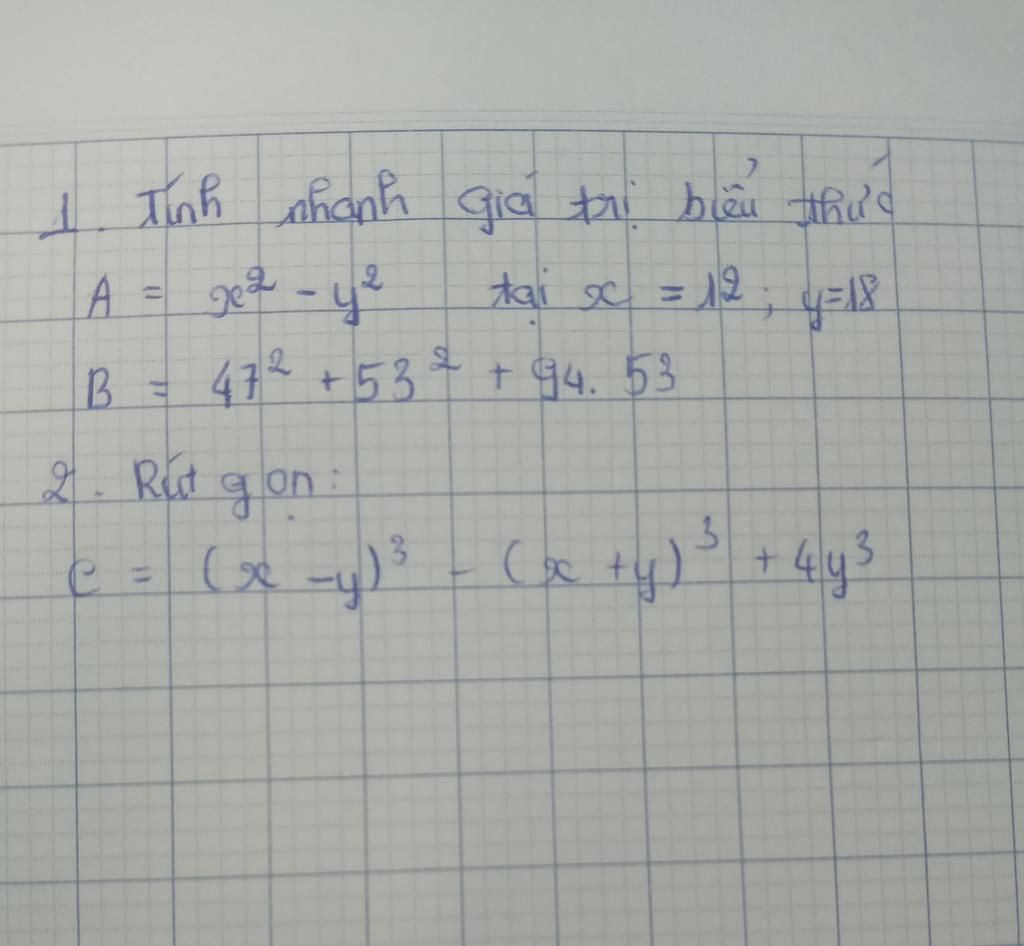 1. Tính nhanh giá trị biểu thức
A = x² - y² tại x = 12 ; y=18
B = 47² + 53² + 94. 53
2. Rút gọn:
C = (x - y)³ - (x + y)³ + 4y³